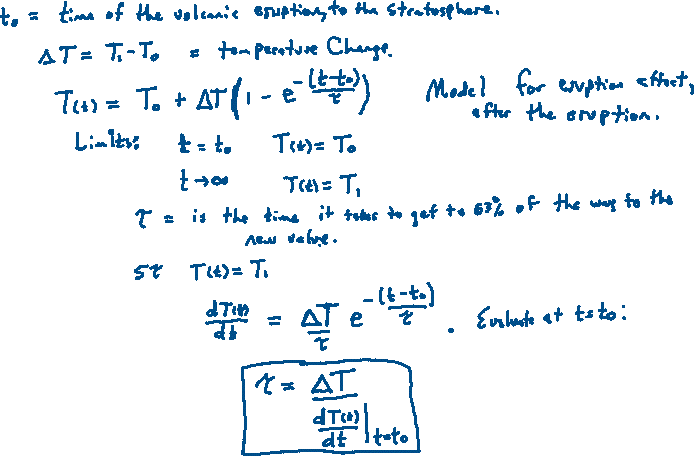 t₀ = time of the volcanic eruption, to the stratosphere.
ΔT = T₁ - T₀ = temperature Change.
T(t) = T₀ + ΔT(1 - e^{-(t-t₀)/τ}) Model for eruption effect,
after the eruption.
Limits: t = t₀ T(t) = T₀
t → ∞ T(t) = T₁
τ = is the time it takes to get to 63% of the way to the
new value.
5τ T(t) = T₁
dT(t)/dt = ΔT/τ e^{-(t-t₀)/τ}. Evaluate at t=t₀:
τ = ΔT / dT(t)/dt |t=t₀